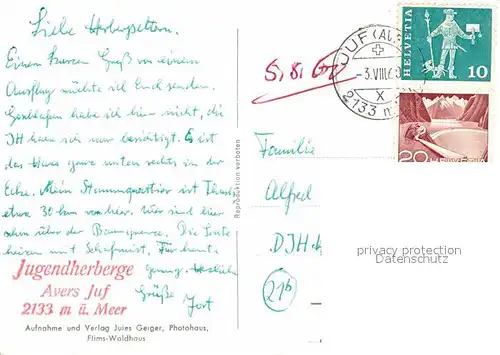 Liebe Herbergseltern.
Einen kurzen Gruß von einem
Ausflug möchte ich Euch senden.
Geschlafen habe ich hier nicht, die
JH habe ich nur besichtigt. Es ist
das Haus ganz unten rechts in der
Ecke. Mein Stammquartier ist Thusis
etwa 30 km von hier. Wir sind hier
schon über der Baumgrenze. Die Leute
heizen mit Schafmist. Für heute
genug. Herzliche
Grüße
Jugendherberge
Avers Juf
2133 m ü. Meer
Aufnahme und Verlag Jules Geiger, Photohaus,
Flims-Waldhaus
Reproduktion verboten
JUF (AV
-3.VIII.
X
2133 m
HELVETIA
10
20
Familie
Alfred
DJH
21b
privacy protection
Datenschutz